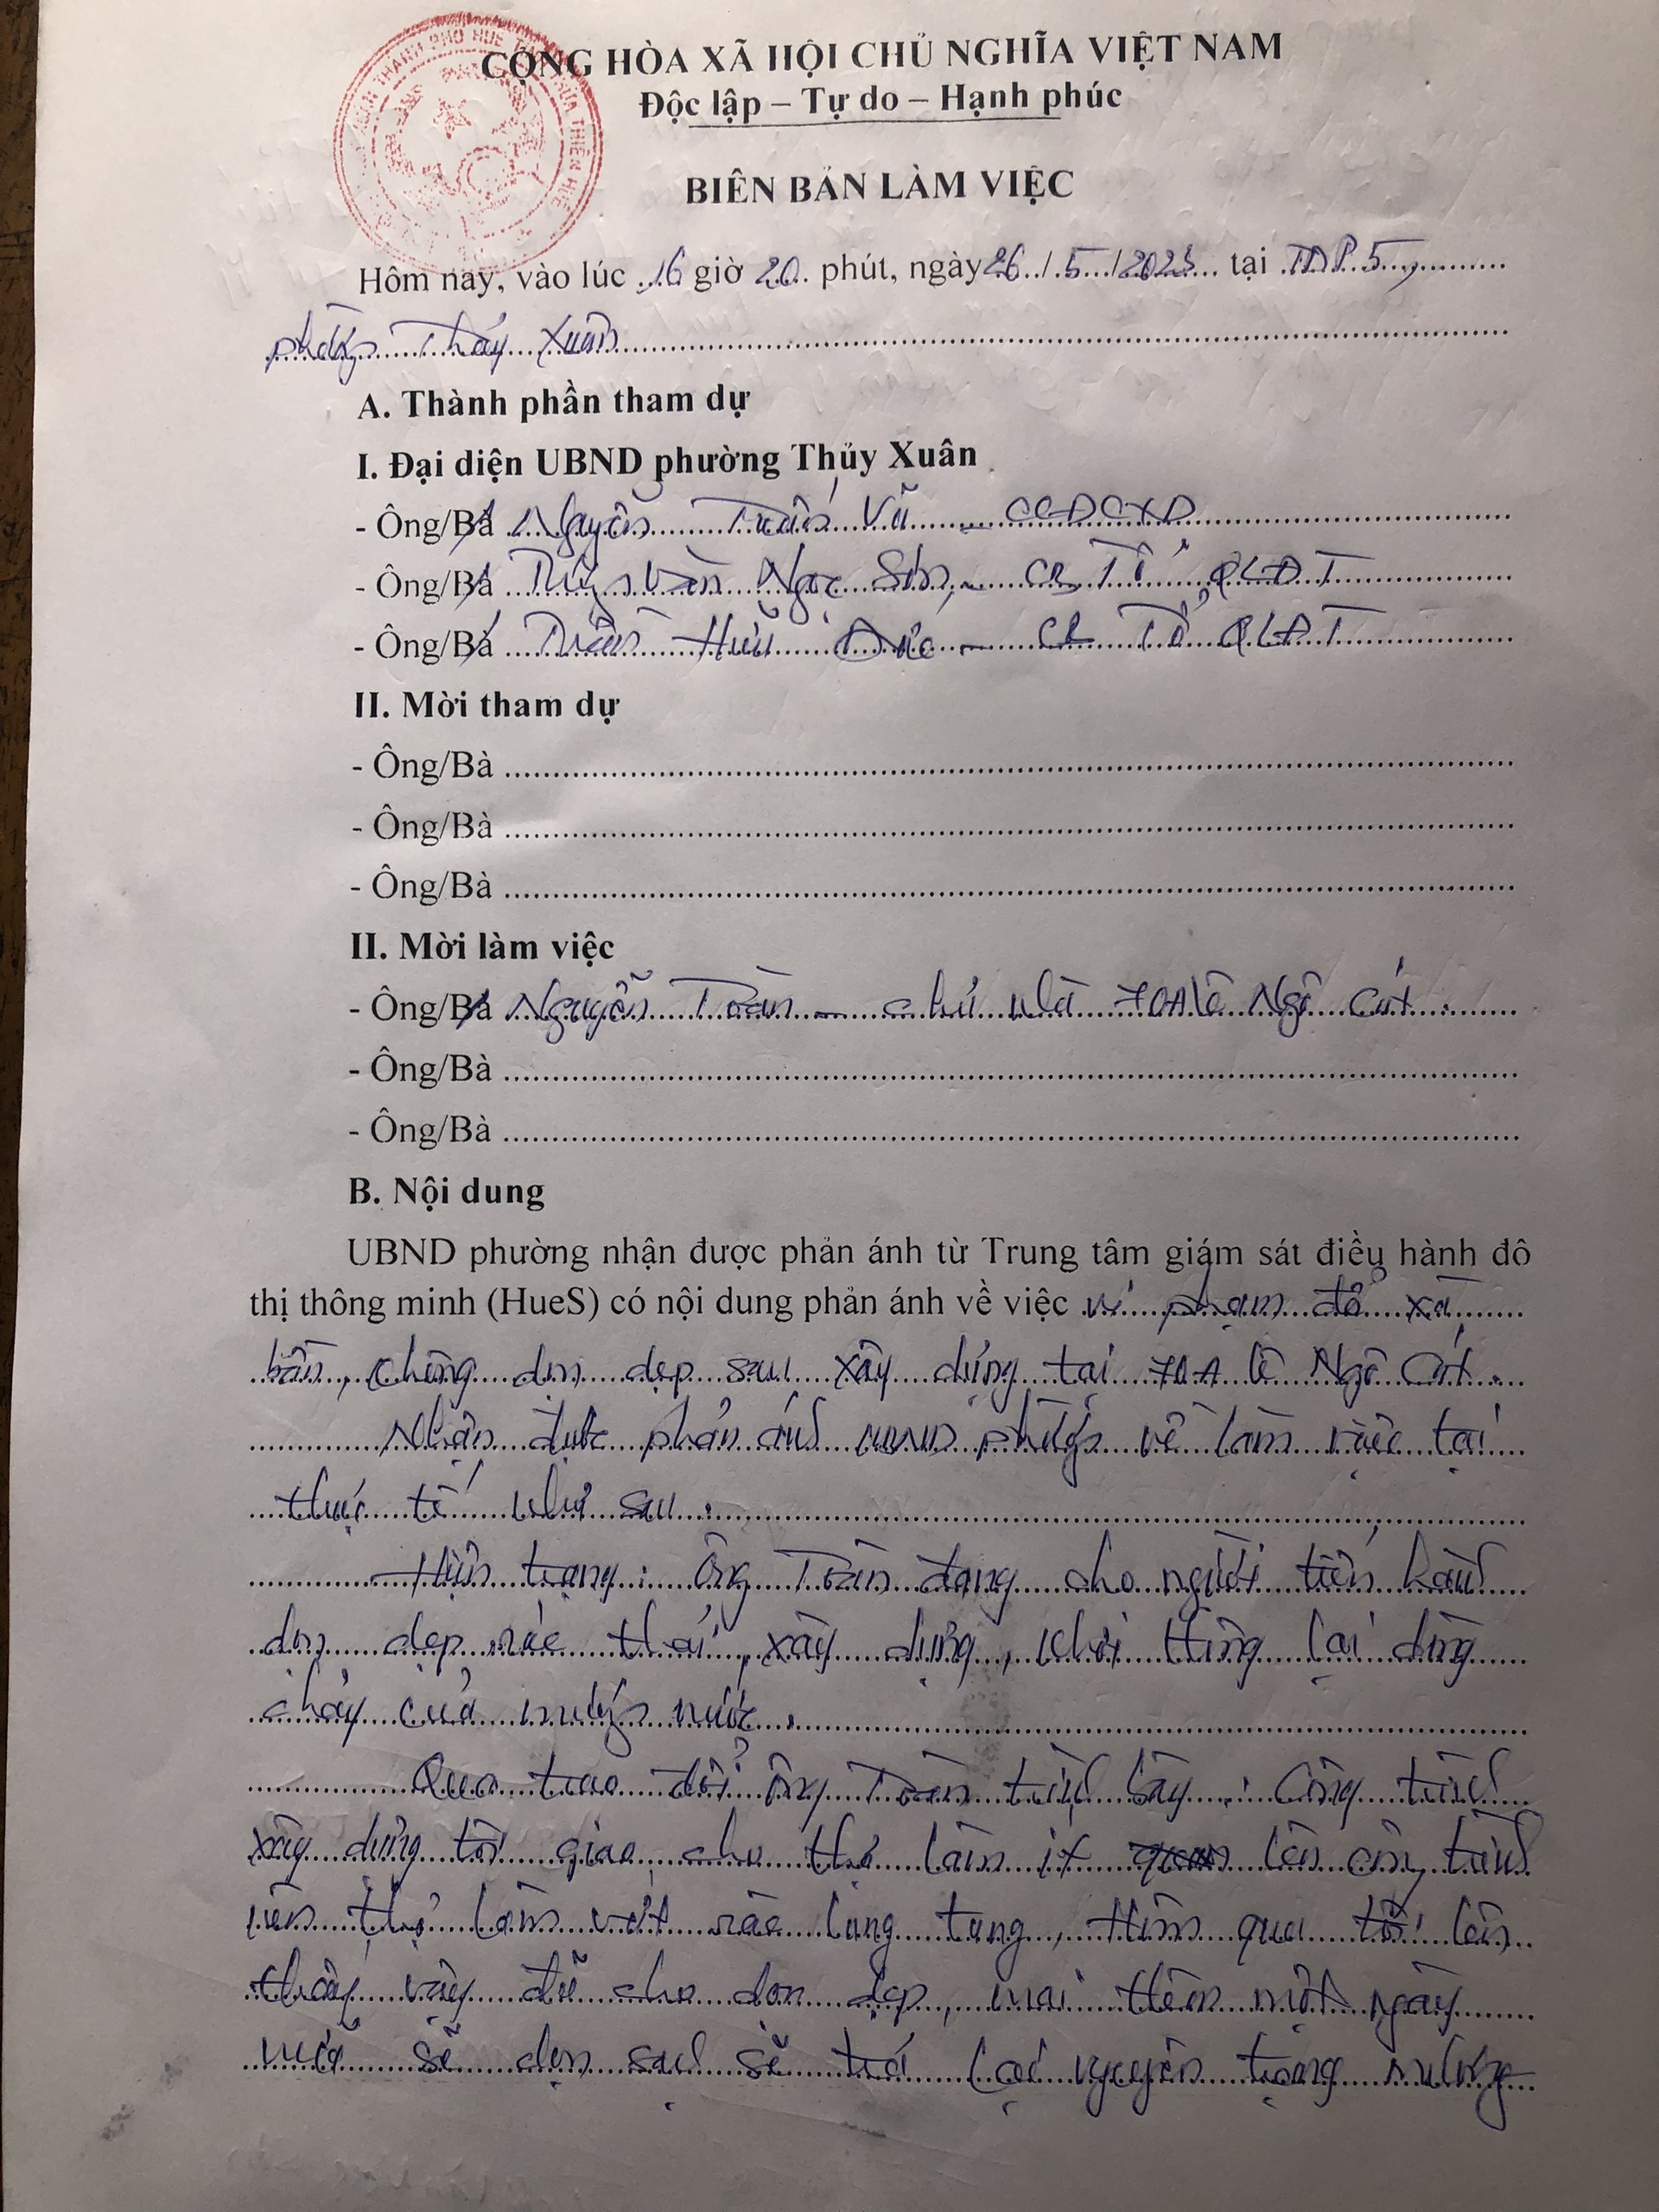 CỘNG HÒA XÃ HỘI CHỦ NGHĨA VIỆT NAM
Độc lập – Tự do – Hạnh phúc
BIÊN BẢN LÀM VIỆC
Hôm nay, vào lúc 16 giờ 20 phút, ngày 26/5/2023 tại TDP 5,
phường Thủy Xuân
A. Thành phần tham dự
I. Đại diện UBND phường Thủy Xuân
- Ông/Bà Nguyễn Tuấn Vũ - CCĐCXD
- Ông/Bà Văn Ngọc Sơn - CB Tổ QLĐT
- Ông/Bà Trần Hữu Đức - CB Tổ QLĐT
II. Mời tham dự
- Ông/Bà
- Ông/Bà
- Ông/Bà
II. Mời làm việc
- Ông/Bà Nguyễn Toàn - chủ nhà 70A Lê Ngô Cát.
- Ông/Bà
- Ông/Bà
B. Nội dung
UBND phường nhận được phản ánh từ Trung tâm giám sát điều hành đô
thị thông minh (HueS) có nội dung phản ánh về việc vi phạm đổ xà
bần, không dọn dẹp sau xây dựng tại 70A Lê Ngô Cát.
Nhận được phản ánh UBND phường về làm việc tại
thực tế như sau:
Hiện trạng: Ông Toàn đang cho người tiến hành
dọn dẹp rác thải xây dựng, khơi thông lại dòng
chảy của mương nước.
Qua trao đổi ông Toàn trình bày: Công trình
xây dựng tôi giao cho thợ làm ít lên công trình
nên thợ làm vứt rác lung tung, hôm qua tôi lên
thấy vậy đã cho dọn dẹp, mai thêm một ngày
nữa sẽ dọn sạch sẽ trả lại nguyên trạng mương